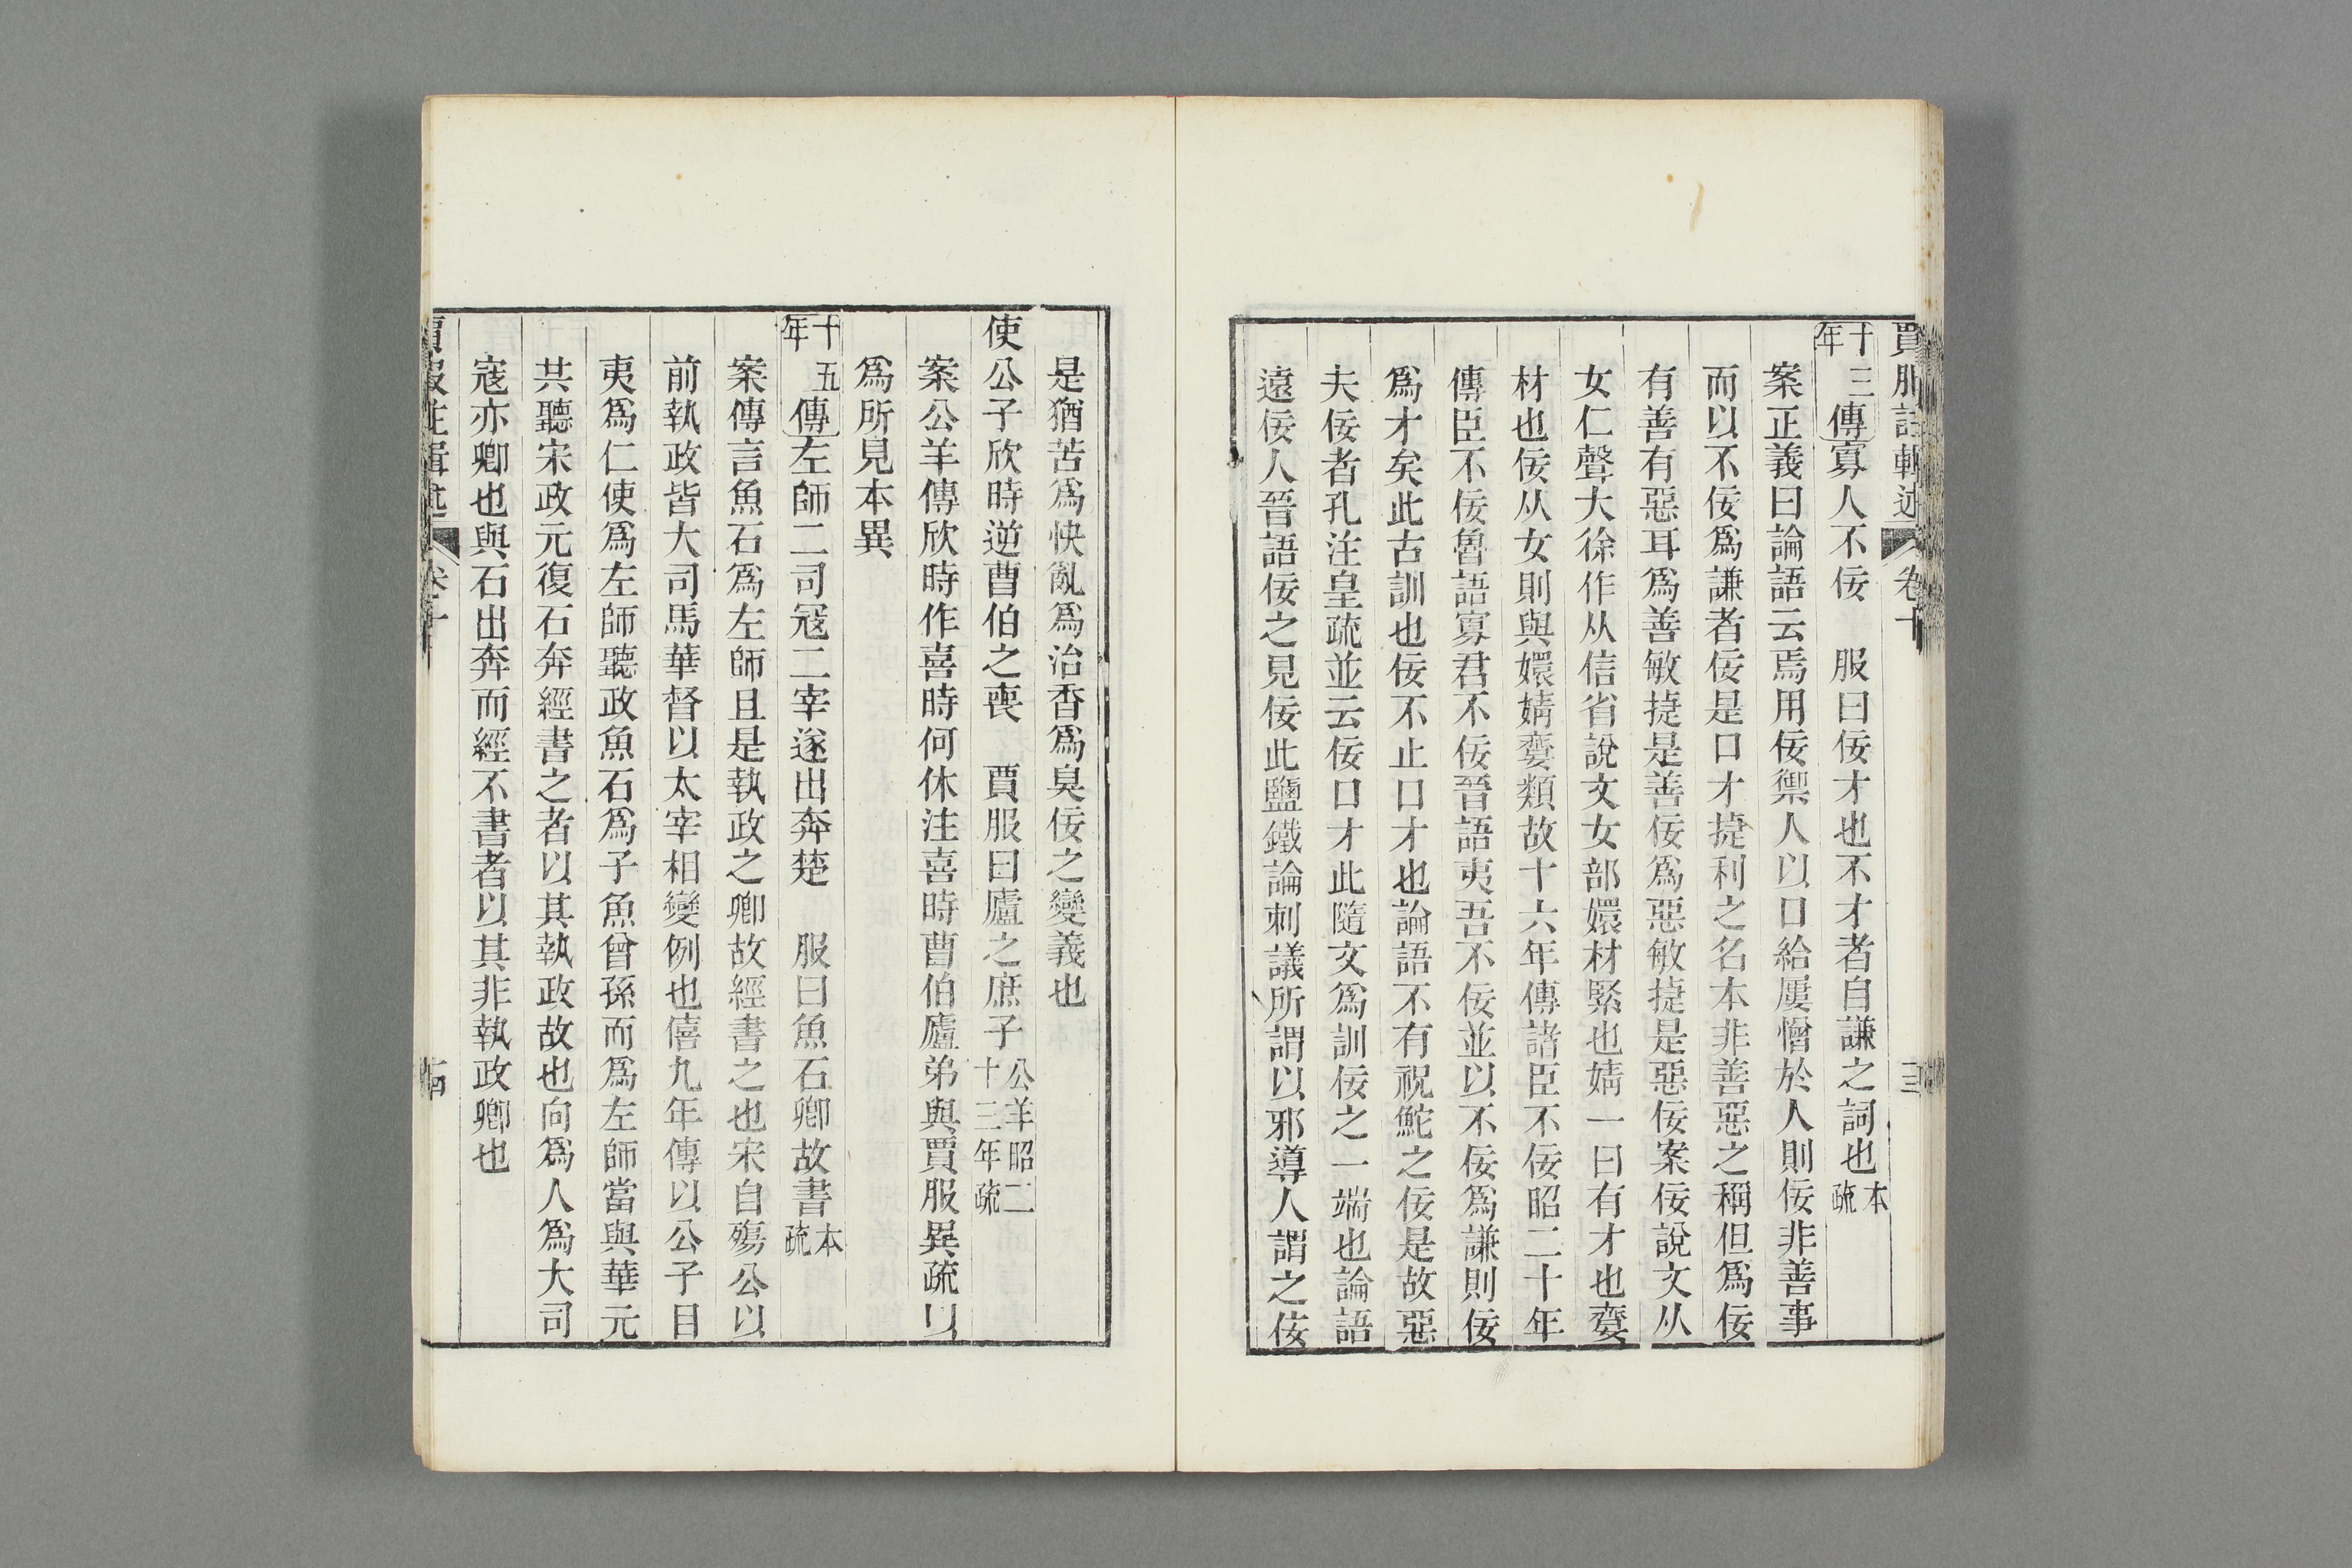 賈服註輯述 卷十 十三
十三年傳寡人不佞 服曰佞才也不才者自謙之詞也本疏
案正義曰論語云焉用佞禦人以口給屢憎於人則佞非善事
而以不佞爲謙者佞是口才捷利之名本非善惡之稱但爲佞
有善有惡耳爲善敏捷是善佞爲惡敏捷是惡佞案佞說文从
女仁聲大徐作从信省說文女部嬛材緊也婧一曰有才也㜲
材也佞从女則與嬛婧㜲類故十六年傳諸臣不佞昭二十年
傳臣不佞魯語寡君不佞晉語夷吾不佞並以不佞爲謙則佞
爲才矣此古訓也佞不止口才也論語不有祝鮀之佞是故惡
夫佞者孔注皇疏並云佞口才此隨文爲訓佞之一端也論語
遠佞人晉語佞之見佞此鹽鐵論刺議所謂以邪導人謂之佞
是猶苦爲快亂爲治香爲臭佞之變義也
使公子欣時逆曹伯之喪 賈服曰廬之庶子公羊昭二十三年疏
案公羊傳欣時作喜時何休注喜時曹伯廬弟與賈服異疏以
爲所見本異
十五年傳左師二司寇二宰遂出奔楚 服曰魚石卿故書本疏
案傳言魚石爲左師且是執政之卿故經書之也宋自殤公以
前執政皆大司馬華督以太宰相變例也僖九年傳以公子目
夷爲仁使爲左師聽政魚石爲子魚曾孫而爲左師當與華元
共聽宋政元復石奔經書之者以其執政故也向爲人爲大司
寇亦卿也與石出奔而經不書者以其非執政卿也
賈服註輯述 卷十 十四